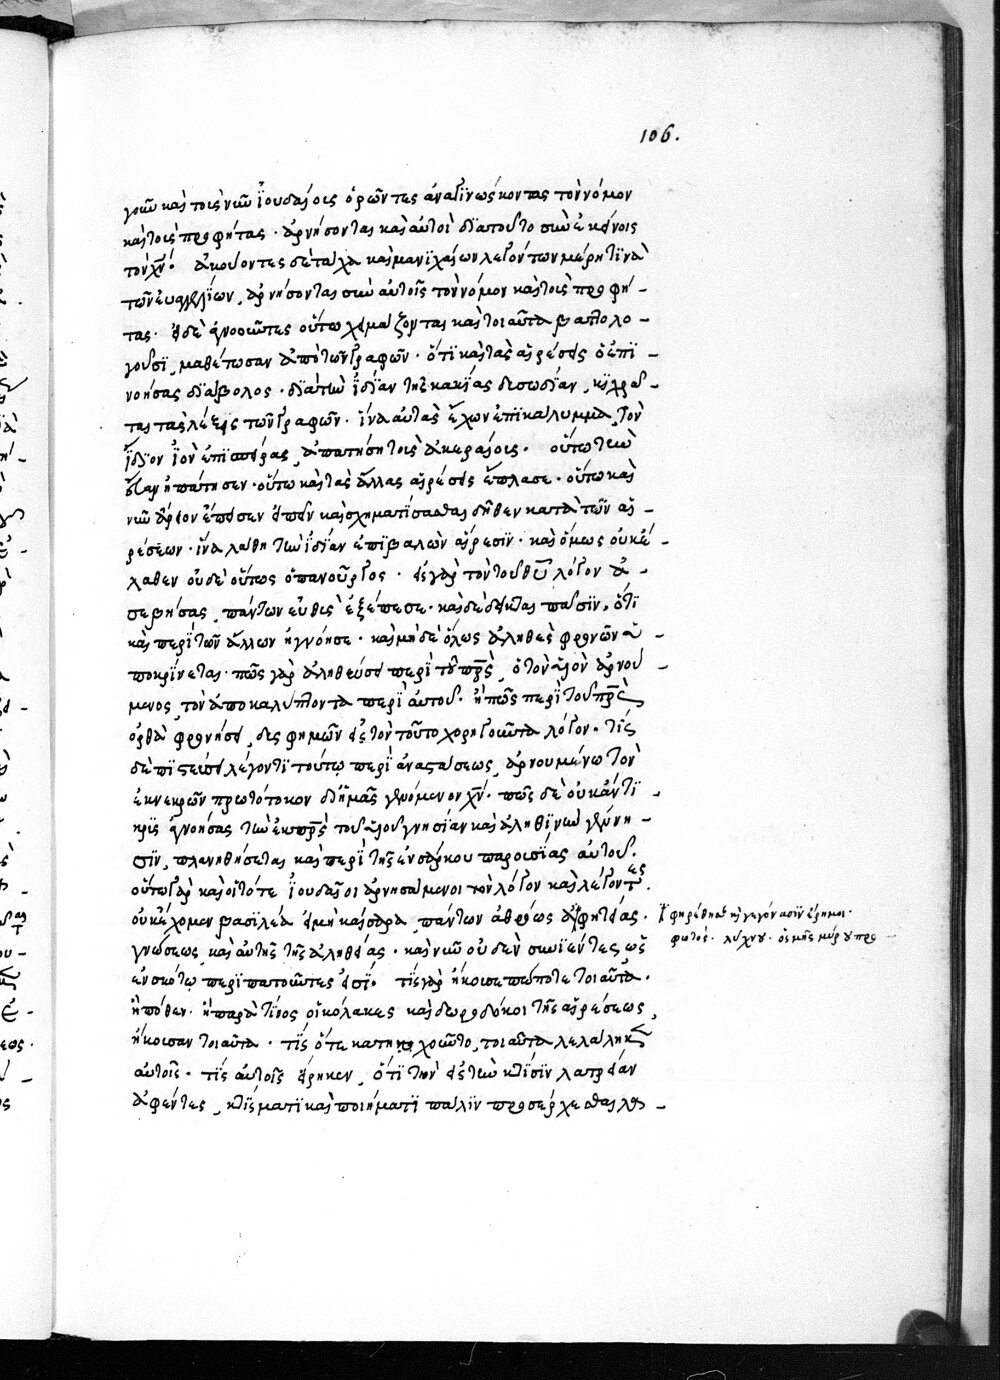 106.
γοῦν καὶ τοῖς νῦν ἰουδαίοις ὁρῶντες ἀναγινώσκοντας τὸν νόμον
καὶ τοὺς προφήτας· ἀρνήσονται καὶ αὐτοὶ διὰ τοῦτο σὺν ἐκείνοις
τὸν χν· ἀκούοντες δὲ τάχα καὶ μανιχαίων λεγόντων μέρη τινὰ
τῶν εὐαγγελίων, ἀρνήσονται σὺν αὐτοῖς τὸν νόμον καὶ τοὺς προφή-
τας· εἰ δὲ ἀγνοοῦντες οὕτω χειμάζονται καὶ τοιαῦτα βαττολο-
γοῦσι, μαθέτωσαν ἀπὸ τῶν γραφῶν· ὅτι καὶ τὰς αἱρέσεις ὁ ἐπι-
νοήσας διάβολος· διὰ τὴν ἰδίαν τῆς κακίας δυσωδίαν, κίχρα-
ται τὰς λέξεις τῶν γραφῶν· ἵνα αὐτὰς ἔχων ἐπικάλυμμα, τὸν
ἴδιον ἰὸν ἐπισπείρας, ἀπατήσῃ τοὺς ἀκεραίους· οὕτω τὴν
εὔαν ἠπάτησεν· οὕτω καὶ τὰς ἄλλας αἱρέσεις ἔπλασε· οὕτω καὶ
νῦν ἄρειον ἔπεισεν εἰπεῖν καὶ σχηματίσασθαι δῆθεν κατὰ τῶν αἱ-
ρέσεων· ἵνα λάθῃ τὴν ἰδίαν ἐπιβαλὼν αἵρεσιν· καὶ ὅμως οὐκ ἔ-
λαθεν οὐδὲ οὕτως ὁ πανοῦργος· εἰς γὰρ τὸν τοῦ θυ λόγον ἀ-
σεβήσας, πάντων εὐθὺς ἐξέπεσε· καὶ δέδεικται πᾶσιν, ὅτι
καὶ περὶ τῶν ἄλλων ἠγνόησε· καὶ μηδὲ ὅλως ἀληθὲς φρονῶν ὑ-
ποκρίνεται· πῶς γὰρ ἀληθεύσει περὶ τοῦ πρς, ὁ τὸν υἱὸν ἀρνού-
μενος, τὸν ἀποκαλύπτοντα περὶ αὐτοῦ· ἢ πῶς περὶ τοῦ πνς
ὀρθὰ φρονήσει, δυσφημῶν εἰς τὸν τοῦτο χορηγοῦντα λόγον· τίς
δὲ πιστεύσει λέγοντι τούτῳ περὶ ἀναστάσεως, ἀρνουμένῳ τὸν
ἐκ νεκρῶν πρωτότοκον δι' ἡμᾶς γενόμενον χν· πῶς δὲ οὐκ ἄντι-
κρυς ἀγνοήσας τὴν ἐκ πρς τοῦ υἱοῦ γνησίαν καὶ ἀληθινὴν γέννη-
σιν, πλανηθήσεται καὶ περὶ τῆς ἐνσάρκου παρουσίας αὐτοῦ·
οὕτω γὰρ καὶ οἱ τότε ἰουδαῖοι ἀρνησάμενοι τὸν λόγον καὶ λέγοντες·
οὐκ ἔχομεν βασιλέα εἰ μὴ καίσαρα, πάντων ἀθρόως ἀφῃρέθησαν καὶ γεγόνασιν ἔρημοι·
φωτός· λύχνου· ὀσμῆς μύρου προ-
γνώσεως καὶ αὐτῆς τῆς ἀληθείας· καὶ νῦν οὐδὲν συνιέντες, ὡς
ἐν σκότῳ περιπατοῦντες εἰσί· τίς γὰρ ἤκουσε πώποτε τοιαῦτα·
ἢ πόθεν· ἢ παρὰ τίνος οἱ κόλακες καὶ δωροδόκοι τῆς αἱρέσεως,
ἤκουσαν τοιαῦτα· τίς ὅτε κατηχοῦντο, τοιαῦτα λελάληκεν
αὐτοῖς· τίς αὐτοῖς εἴρηκεν, ὅτι τὴν εἰς τὴν κτίσιν λατρείαν
ἀφέντες, κτίσματι καὶ ποιήματι πάλιν προσέρχεσθαι λα-